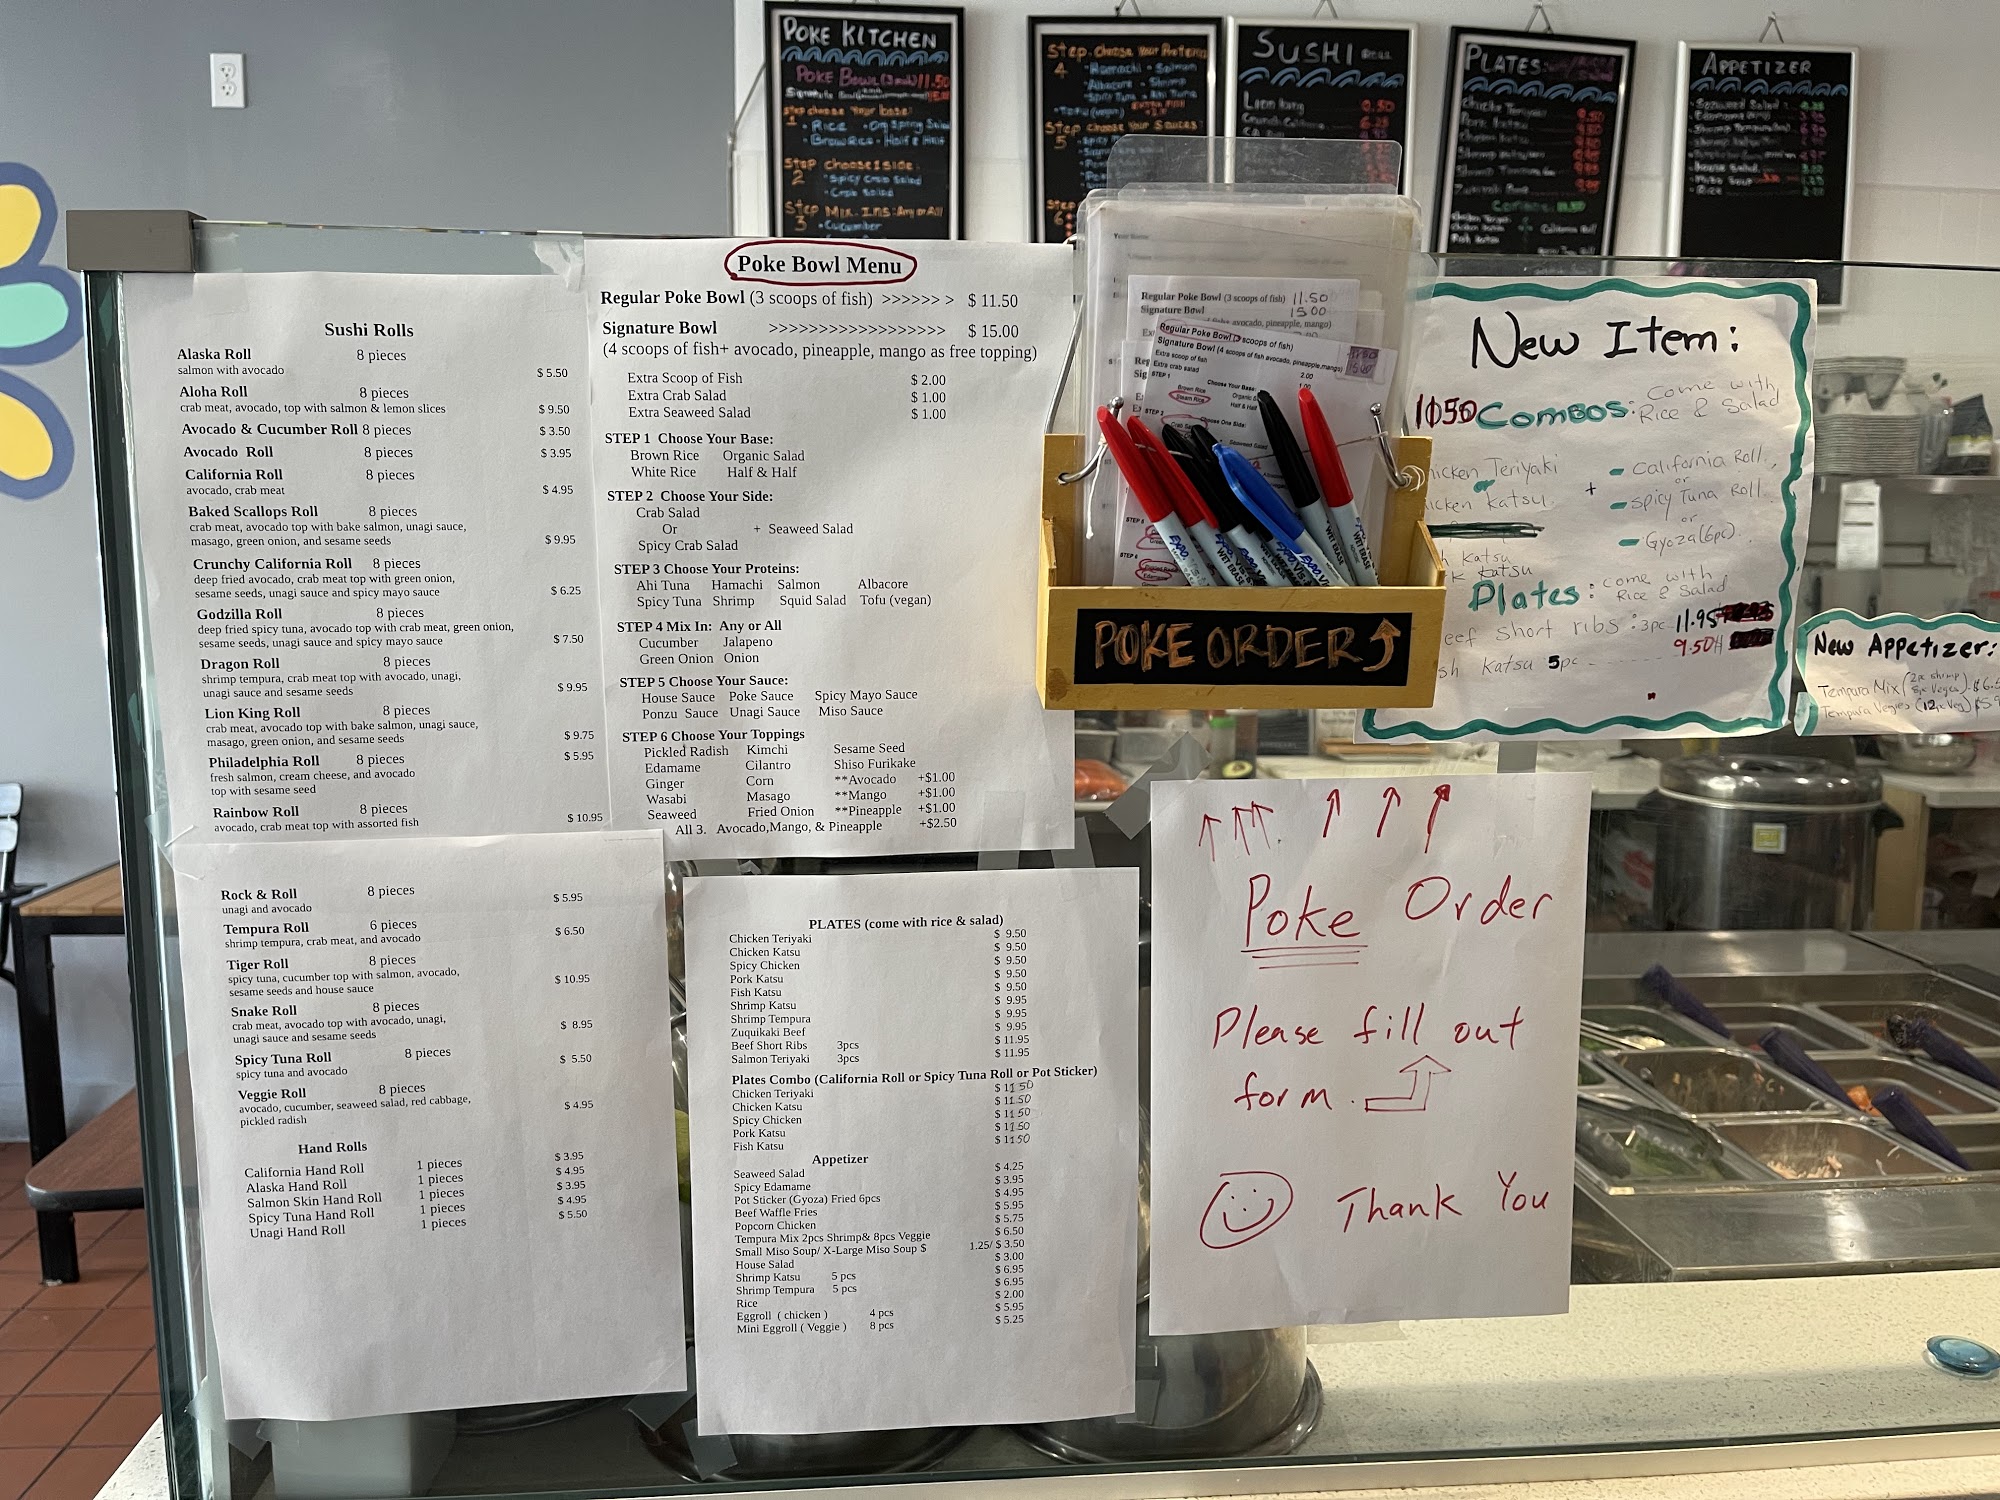 POKE KITCHEN
POKE Bowl (3 scoops) 11.50
Step choose Your base:
1
• Rice • Org Spring Salad
• Brown Rice • Half & Half
Step choose 1 side.
2
• Spicy Crab Salad
• Crab Salad
Step Mix-Ins: Any or All
3
• Cucumber
Step choose Your Proteins
4
• Hamachi • Salmon
• Albacore • Shrimp
• Spicy Tuna • Ahi Tuna
• Tofu (vegan)
Step choose Your Sauces:
5
Step
6
SUSHI
Lion King 9.50
Crunch California 6.25
PLATES
Chicken Teriyaki
Pork Katsu
Chicken Katsu
Combo
APPETIZER
Seaweed Salad
House Salad
Miso Soup
Rice
Sushi Rolls
Alaska Roll 8 pieces
salmon with avocado $ 5.50
Aloha Roll 8 pieces
crab meat, avocado, top with salmon & lemon slices $ 9.50
Avocado & Cucumber Roll 8 pieces $ 3.50
Avocado Roll 8 pieces $ 3.95
California Roll 8 pieces
avocado, crab meat $ 4.95
Baked Scallops Roll 8 pieces
crab meat, avocado top with bake salmon, unagi sauce,
masago, green onion, and sesame seeds $ 9.95
Crunchy California Roll 8 pieces
deep fried avocado, crab meat top with green onion,
sesame seeds, unagi sauce and spicy mayo sauce $ 6.25
Godzilla Roll 8 pieces
deep fried spicy tuna, avocado top with crab meat, green onion,
sesame seeds, unagi sauce and spicy mayo sauce $ 7.50
Dragon Roll 8 pieces
shrimp tempura, crab meat top with avocado, unagi,
unagi sauce and sesame seeds $ 9.95
Lion King Roll 8 pieces
crab meat, avocado top with bake salmon, unagi sauce,
masago, green onion, and sesame seeds $ 9.75
Philadelphia Roll 8 pieces $ 5.95
fresh salmon, cream cheese, and avocado
top with sesame seed
Rainbow Roll 8 pieces
avocado, crab meat top with assorted fish $ 10.95
Rock & Roll 8 pieces $ 5.95
unagi and avocado
Tempura Roll 6 pieces $ 6.50
shrimp tempura, crab meat, and avocado
Tiger Roll 8 pieces
spicy tuna, cucumber top with salmon, avocado, $ 10.95
sesame seeds and house sauce
Snake Roll 8 pieces
crab meat, avocado top with avocado, unagi, $ 8.95
unagi sauce and sesame seeds
Spicy Tuna Roll 8 pieces $ 5.50
spicy tuna and avocado
Veggie Roll 8 pieces
avocado, cucumber, seaweed salad, red cabbage, $ 4.95
pickled radish
Hand Rolls
California Hand Roll 1 pieces $ 3.95
Alaska Hand Roll 1 pieces $ 4.95
Salmon Skin Hand Roll 1 pieces $ 3.95
Spicy Tuna Hand Roll 1 pieces $ 4.95
Unagi Hand Roll 1 pieces $ 5.50
Poke Bowl Menu
Regular Poke Bowl (3 scoops of fish) >>>>>> > $ 11.50
Signature Bowl >>>>>>>>>>>>>>>>>> $ 15.00
(4 scoops of fish+ avocado, pineapple, mango as free topping)
Extra Scoop of Fish $ 2.00
Extra Crab Salad $ 1.00
Extra Seaweed Salad $ 1.00
STEP 1 Choose Your Base:
Brown Rice Organic Salad
White Rice Half & Half
STEP 2 Choose Your Side:
Crab Salad
Or + Seaweed Salad
Spicy Crab Salad
STEP 3 Choose Your Proteins:
Ahi Tuna Hamachi Salmon Albacore
Spicy Tuna Shrimp Squid Salad Tofu (vegan)
STEP 4 Mix In: Any or All
Cucumber Jalapeno
Green Onion Onion
STEP 5 Choose Your Sauce:
House Sauce Poke Sauce Spicy Mayo Sauce
Ponzu Sauce Unagi Sauce Miso Sauce
STEP 6 Choose Your Toppings
Pickled Radish Kimchi Sesame Seed
Edamame Cilantro Shiso Furikake
Ginger Corn **Avocado +$1.00
Wasabi Masago **Mango +$1.00
Seaweed Fried Onion **Pineapple +$1.00
All 3. Avocado,Mango, & Pineapple +$2.50
PLATES (come with rice & salad)
Chicken Teriyaki $ 9.50
Chicken Katsu $ 9.50
Spicy Chicken $ 9.50
Pork Katsu $ 9.50
Fish Katsu $ 9.50
Shrimp Katsu $ 9.95
Shrimp Tempura $ 9.95
Zuquikaki Beef $ 9.95
Beef Short Ribs 3pcs $ 11.95
Salmon Teriyaki 3pcs $ 11.95
Plates Combo (California Roll or Spicy Tuna Roll or Pot Sticker)
Chicken Teriyaki $ 11.50
Chicken Katsu $ 11.50
Spicy Chicken $ 11.50
Pork Katsu $ 11.50
Fish Katsu $ 11.50
Appetizer
Seaweed Salad $ 4.25
Spicy Edamame $ 3.95
Pot Sticker (Gyoza) Fried 6pcs $ 4.95
Beef Waffle Fries $ 5.95
Popcorn Chicken $ 5.75
Tempura Mix 2pcs Shrimp& 8pcs Veggie $ 6.50
Small Miso Soup/ X-Large Miso Soup $ 1.25/ $ 3.50
House Salad $ 3.00
Shrimp Katsu 5 pcs $ 6.95
Shrimp Tempura 5 pcs $ 6.95
Rice $ 2.00
Eggroll ( chicken ) 4 pcs $ 5.95
Mini Eggroll ( Veggie ) 8 pcs $ 5.25
Regular Poke Bowl (3 scoops of fish) 11.50
Signature Bowl 15.00
avocado, pineapple, mango)
Regular Poke Bowl (3 scoops of fish)
Signature Bowl (4 scoops of fish avocado, pineapple, mango)
Extra scoop of fish 2.00
Extra crab salad
STEP 1 Choose Your Base:
Brown Rice
Steam Rice Half & Half
EXPO
WET ERASE
POKE ORDER
New Item:
Combos: Come with
Rice & Salad
hicken Teriyaki - California Roll
or
hicken Katsu + - Spicy Tuna Roll
or
- Gyoza (6pc)
h Katsu
k Katsu
Plates: come with
Rice & Salad
eef short ribs : 3pc 11.95
sh Katsu 5pc 9.50
New Appetizer:
Tempura Mix (2pc shrimp
Tempura Vegies (12pc Veg)
Poke Order
Please fill out
form.
Thank You